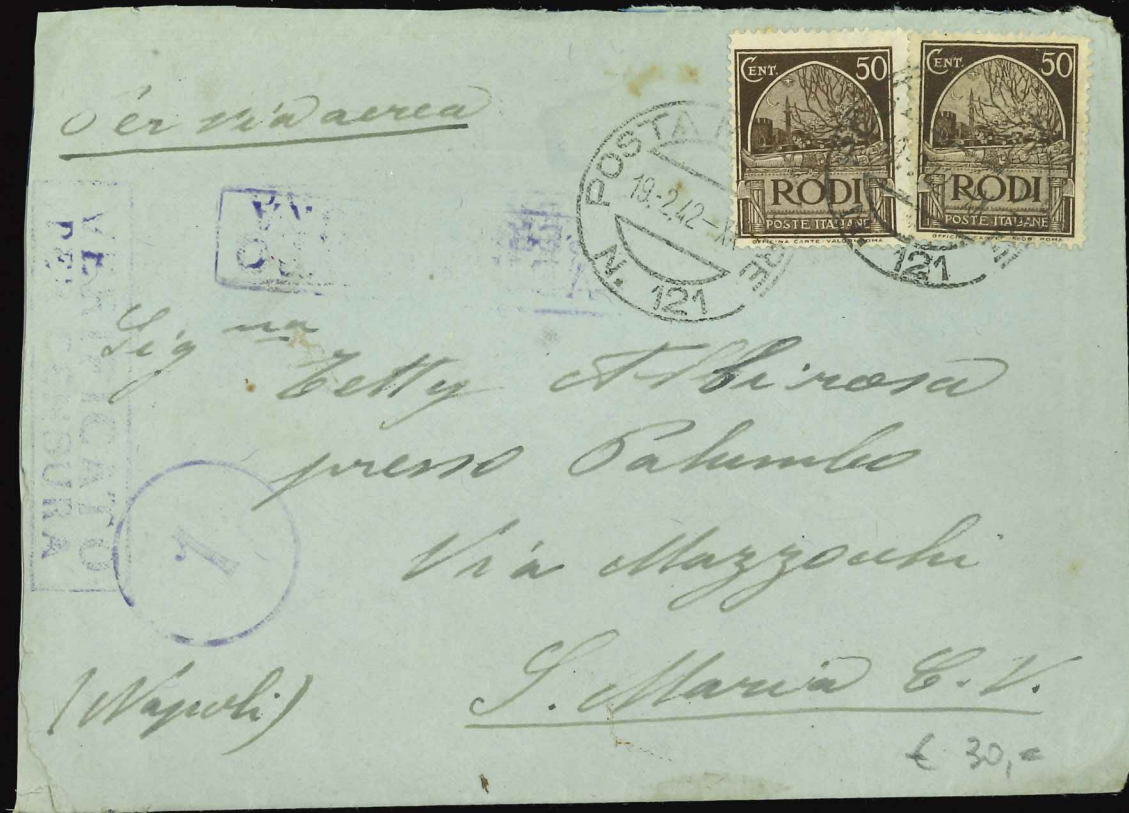 Per via aerea
CENT. 50
RODI
POSTE ITALIANE
OFFICINA CARTE-VALORI ROMA
CENT. 50
RODI
POSTE ITALIANE
ROMA
POSTA
19-2.42-X
N. 121
121
VERIFICATO
PER CENSURA
1
Signa Letty Albirosa
presso Palumbo
Via Mazzocchi
S. Maria C.V.
(Napoli)
€ 30,=